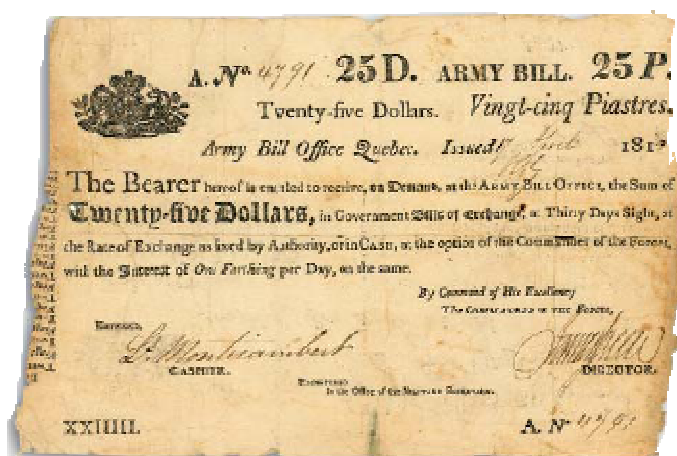 A. No. 4791 25 D. ARMY BILL. 25 P.
Twenty-five Dollars. Vingt-cinq Piastres.
Army Bill Office Quebec. Issued 181
The Bearer hereof is entitled to receive, on Demand, at the ARMY BILL OFFICE, the Sum of
Twenty-five Dollars, in Government Bills of Exchange, at Thirty Days Sight, at
the Rate of Exchange as fixed by Authority, or in CASH, at the option of the Commander of the FORCES,
with the Interest of One Farthing per Day, on the same.
By Command of His Excellency
THE COMMANDER OF THE FORCES,
CASHIER.
DIRECTOR.
in the Office of the MILITARY SECRETARY.
XXIIIII. A. No 4791